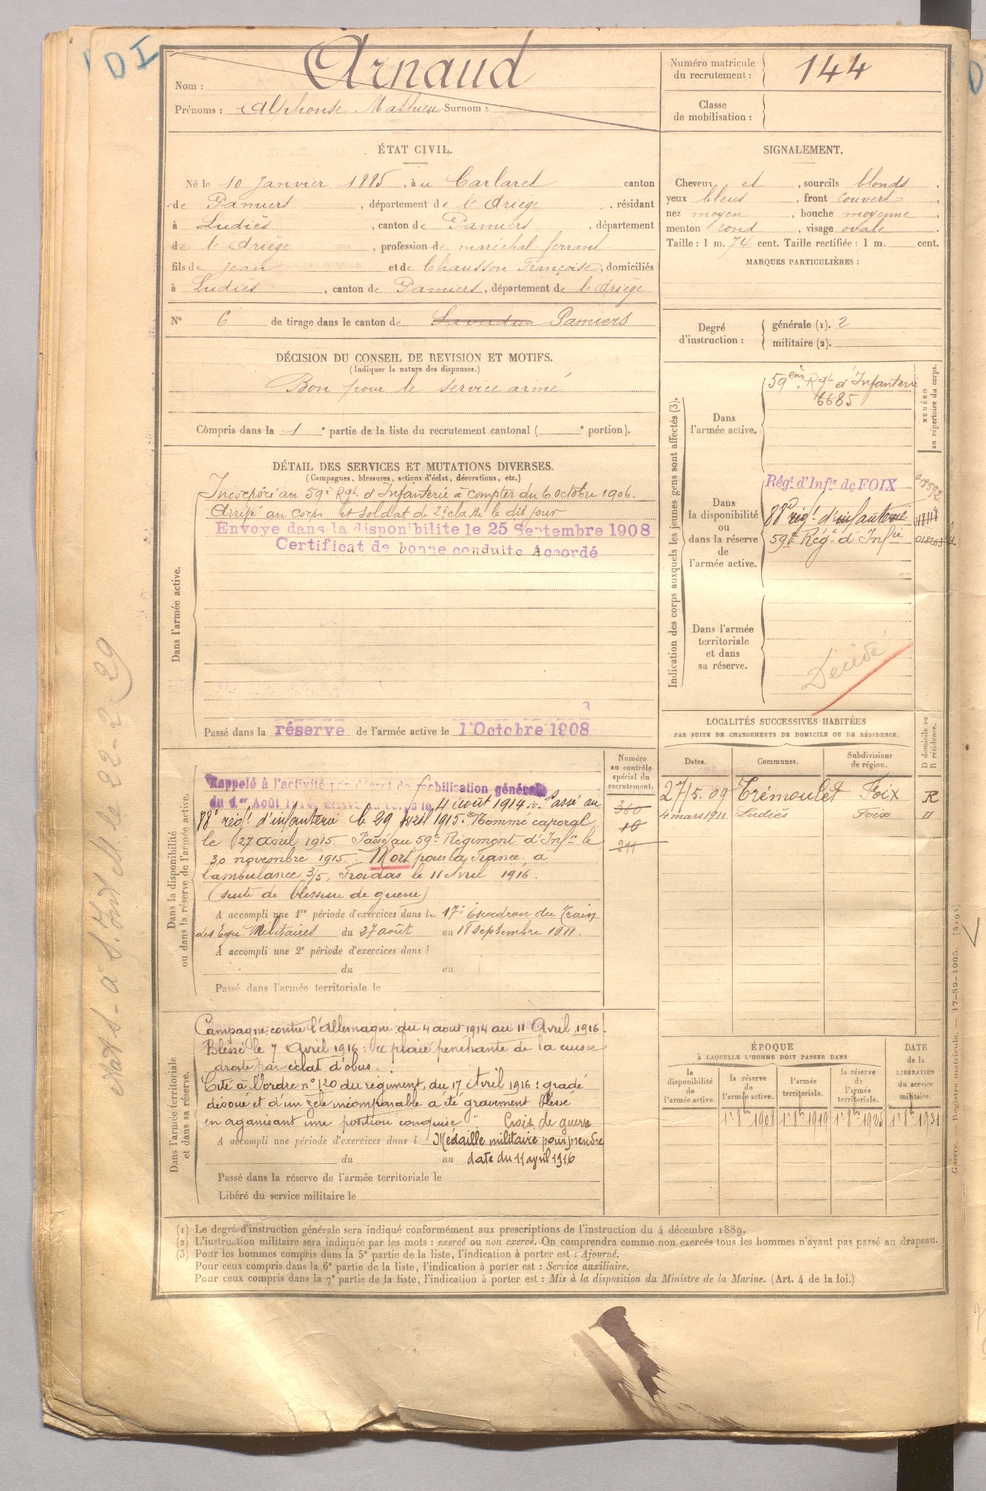 DI
Nom : Arnaud
Prénoms : Alphonse Mathieu Surnom :
Numéro matricule du recrutement : 144
Classe de mobilisation :
ÉTAT CIVIL.
Né le 10 Janvier 1885, à u Carlaret canton
de Pamiers, département de l'Ariège, résidant
à Ludiès, canton de Pamiers, département
de l'Ariège, profession de maréchal ferrant
fils de Jean et de Chausson Françoise, domiciliés
à Ludiès, canton de Pamiers, département de l'Ariège
N° 6 de tirage dans le canton de Saverdun Pamiers
DÉCISION DU CONSEIL DE REVISION ET MOTIFS.
(Indiquer la nature des dispenses.)
Bon pour le service armé
Compris dans la 1e partie de la liste du recrutement cantonal ( e portion).
SIGNALEMENT.
Cheveux et , sourcils blonds,
yeux bleus, front couvert,
nez moyen, bouche moyenne
menton rond, visage ovale
Taille : 1 m. 74 cent. Taille rectifiée : 1 m. cent.
MARQUES PARTICULIÈRES :
Degré d'instruction :
générale (1). 2
militaire (2).
DÉTAIL DES SERVICES ET MUTATIONS DIVERSES.
(Campagnes, blessures, actions d'éclat, décorations, etc.)
Dans l'armée active.
Incorporé au 59e Rgt d'Infanterie à compter du 6 octobre 1906.
Arrivé au corps et soldat de 2e classe le dit jour
Envoye dans la disponibilite le 25 Septembre 1908
Certificat de bonne conduite Accordé
3
Passé dans la réserve de l'armée active le 1 Octobre 1908
Indication des corps auxquels les jeunes gens sont affectés (3).
NUMÉRO au répertoire du corps.
Dans l'armée active.
59ème Rgt d'Infanterie
6685
Dans la disponibilité ou dans la réserve de l'armée active.
Régt d'Infie de FOIX
88e régt d'infanterie
59e Régt d'Infie
Dans l'armée territoriale et dans sa réserve.
Décédé
LOCALITÉS SUCCESSIVES HABITÉES
PAR SUITE DE CHANGEMENTS DE DOMICILE OU DE RÉSIDENCE.
D domicile ou R résidence.
Dates. Communes. Subdivisions de région.
27/5.09 Trémoulet Foix R
4 mars 1911. Ludiès Foix "
Dans la disponibilité ou dans la réserve de l'armée active.
Numéro au contrôle spécial du recrutement.
Rappelé à l'activité par décret de mobilisation générale
du 1er Août 1914, arrivé au corps le 4 août 1914. Passé au
88e régt d'infanterie le 29 Avril 1915. Nommé caporal
le 27 Avril 1915. Passé au 59e Régiment d'Infie le
30 novembre 1915. Mort pour la France, à
l'ambulance 3/5, Froidos le 11 Avril 1916.
(suite de blessure de guerre)
A accompli une 1re période d'exercices dans le 17e Escadron du Train
des Équi Militaires du 27 août au 18 Septembre 1911.
A accompli une 2e période d'exercices dans l
du au
Passé dans l'armée territoriale le
Dans l'armée territoriale et dans sa réserve.
Campagne contre l'Allemagne du 4 août 1914 au 11 Avril 1916.
Blessé le 7 Avril 1916 : plaie pénétrante de la cuisse
droite par éclat d'obus.
Cité à l'ordre n° 120 du régiment, du 17 Avril 1916 : gradé
dévoué et d'un zèle incomparable a été gravement blessé
en organisant une position conquise Croix de guerre
A accompli une période d'exercices dans l Médaille militaire pour prendre
du au date du 11 april 1916
Passé dans la réserve de l'armée territoriale le
Libéré du service militaire le
ÉPOQUE
À LAQUELLE L'HOMME DOIT PASSER DANS
la disponibilité de l'armée active.
la réserve de l'armée active.
l'armée territoriale.
la réserve de l'armée territoriale.
DATE de la LIBÉRATION du service militaire.
1er 8bre 1908 1er 8bre 1919 1er 8bre 1925 1er 8bre 1931
(1) Le degré d'instruction générale sera indiqué conformément aux prescriptions de l'instruction du 4 décembre 1889.
(2) L'instruction militaire sera indiquée par les mots : exercé ou non exercé. On comprendra comme non exercés tous les hommes n'ayant pas passé au drapeau.
(3) Pour les hommes compris dans la 5e partie de la liste, l'indication à porter est : Ajourné.
Pour ceux compris dans la 6e partie de la liste, l'indication à porter est : Service auxiliaire.
Pour ceux compris dans la 7e partie de la liste, l'indication à porter est : Mis à la disposition du Ministre de la Marine. (Art. 4 de la loi.)
Guerre. Registre matricule. 17-89-1905.
le 22-2-29